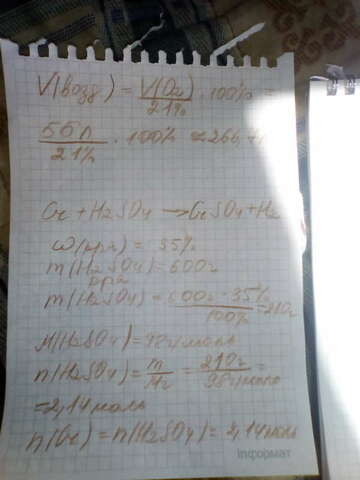 V(возд) = V(O₂)/21% · 100% =
56л/21% · 100% ≈ 266,
Cr + H2SO4 → CrSO4 + H2
ω(р-ра) = 35%
m(H2SO4) = 600г
р-ра
m(H2SO4) = 600г · 35%/100% = 210г
M(H2SO4) = 98г/моль
n(H2SO4) = m/Mr = 210г/98г/моль =
= 2,14 моль
n(Cr) = n(H2SO4) = 2,14моль
інформат